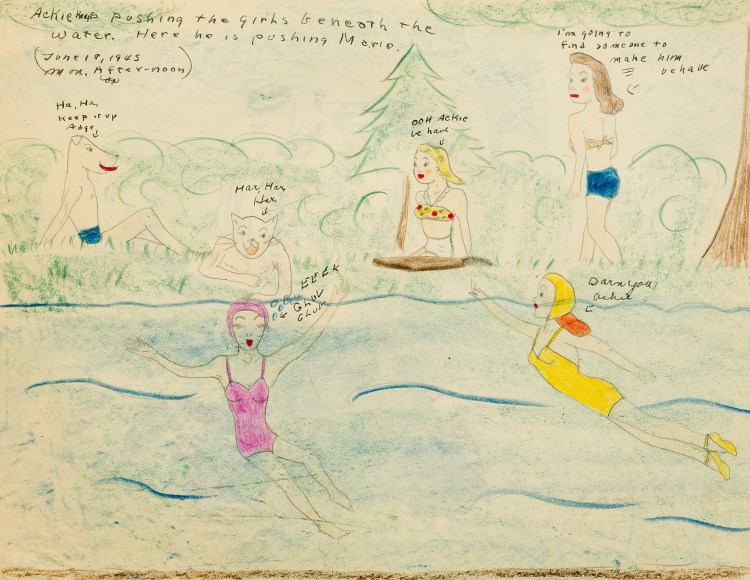 Ackie keeps pushing the girls beneath the
water. Here he is pushing Merie.
(June 18, 1945
Mon. After-noon)
I'm going to
find someone to
make him
behave
Ha, Ha,
keep it up
Adge
OOH Ackie
behave
Har, Har,
Har,
EEEK
GLUV
GLUK
Darn you
Ackie